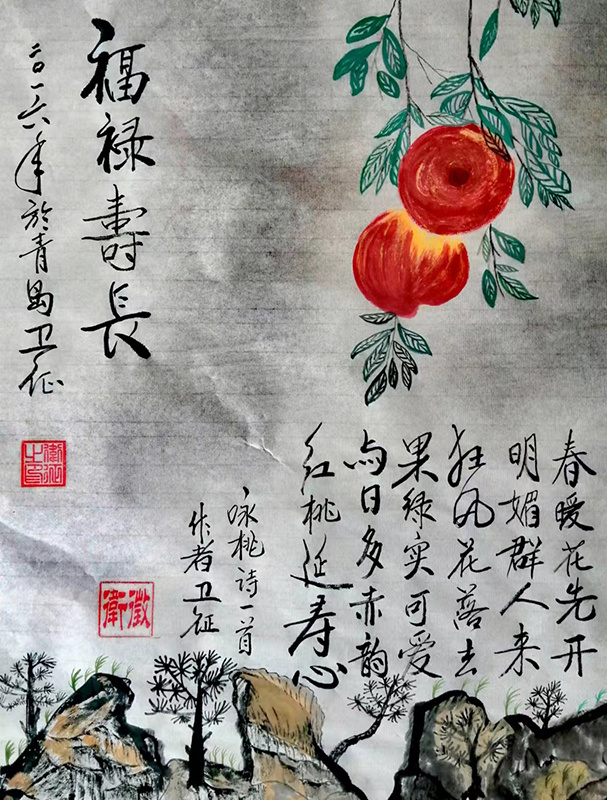 春暖花先开
明媚群人来
狂风花落去
果绿实可爱
与日多赤韵
红桃延寿心
咏桃诗一首
作者卫征
福禄寿長
二〇一六年於青岛卫征
衛徵